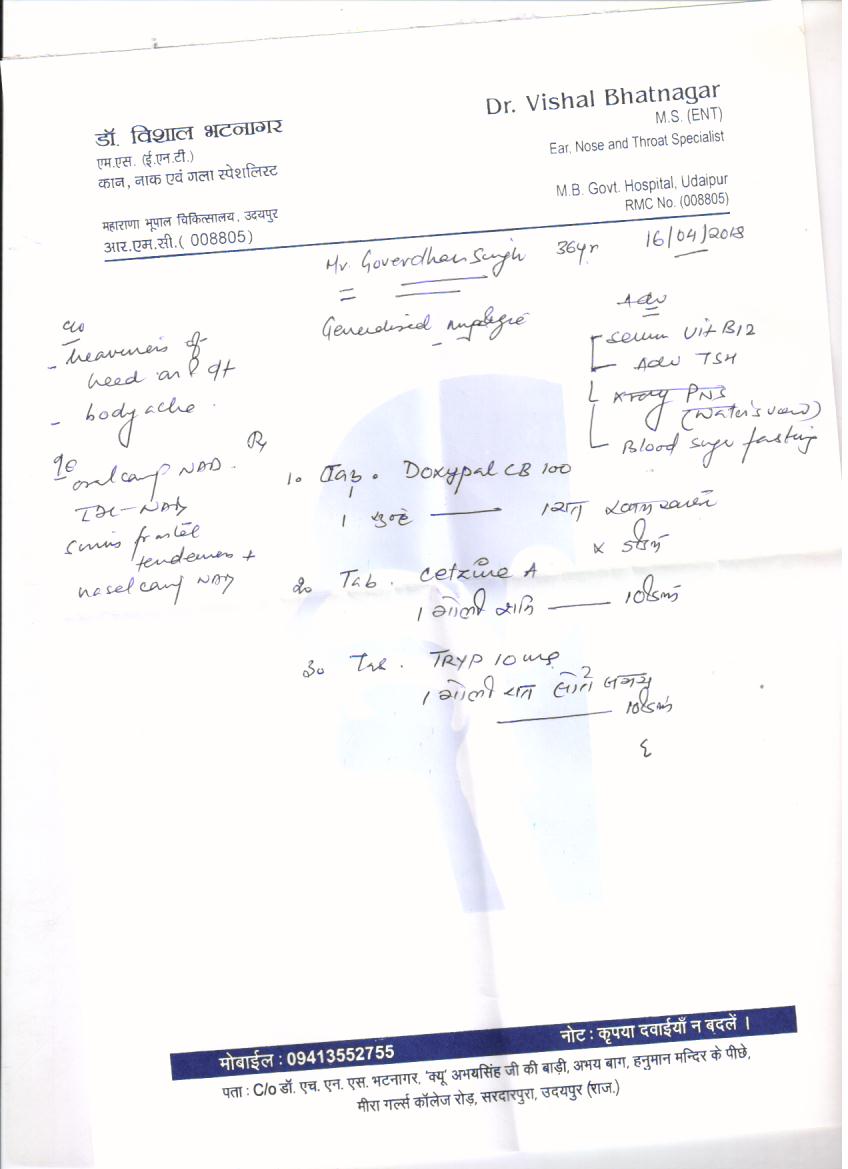 डॉ. विशाल भटनागर
एम.एस. (ई.एन.टी.)
कान, नाक एवं गला स्पेशलिस्ट
महाराणा भूपाल चिकित्सालय, उदयपुर
आर.एम.सी.( 008805)
Dr. Vishal Bhatnagar
M.S. (ENT)
Ear, Nose and Throat Specialist
M.B. Govt. Hospital, Udaipur
RMC No. (008805)
Mr. Goverdhan Singh 36yr 16/04/2018
c/o
- heaviness of
head
- body ache
Generalised
Adv
Serum Vit B12
Adv TSH
Xray PNS
(Water's view)
Blood sugar fasting
O/E
oral cavity NAD
IDL-NAD
sinus frontal
tenderness +
nasal cavity NAD
Rx
1. Tab. Doxypal CB 100
1 सुबह — 1 रात
x 5 दिन
2. Tab. Cetzine A
1 गोली रात्रि — 10 दिन
3. Tab. TRYP 10 mg
1 गोली रात सोते समय
10 दिन
मोबाईल : 09413552755
नोट : कृपया दवाईयाँ न बदलें ।
पता : C/o डॉ. एच. एन. एस. भटनागर, 'क्यू' अभयसिंह जी की बाड़ी, अभय बाग, हनुमान मन्दिर के पीछे,
मीरा गर्ल्स कॉलेज रोड़, सरदारपुरा, उदयपुर (राज.)